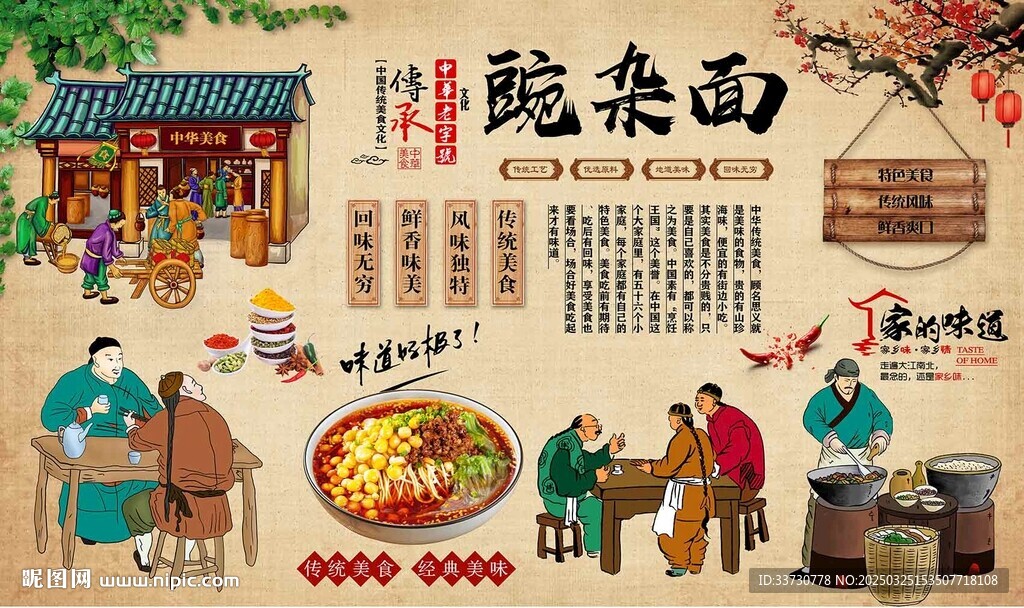 豌杂面
中华美食
【中国传统美食文化】
傳承
中華美食
中華老字號
文化
传统工艺
优选原料
地道美味
回味无穷
特色美食
传统风味
鲜香爽口
传统美食
风味独特
鲜香味美
回味无穷
中华传统美食，顾名思义就
是美味的食物，贵的有山珍
海味，便宜的有街边小吃。
其实美食是不分贵贱的，只
要是自己喜欢的，都可以称
之为美食。中国素有“烹饪
王国”这个美誉。在中国这
个大家庭里，有五十六个小
家庭，每个家庭都有自己的
特色美食。美食吃前有期待
、吃后有回味，享受美食也
要看场合，场合好美食吃起
来才有味道。
味道好极了！
家的味道
家乡味·家乡情
TASTE
OF HOME
走遍大江南北，
最念的，还是家乡味...
传统美食 经典美味
昵图网 www.nipic.com
ID:33730778 NO:20250325153507718108